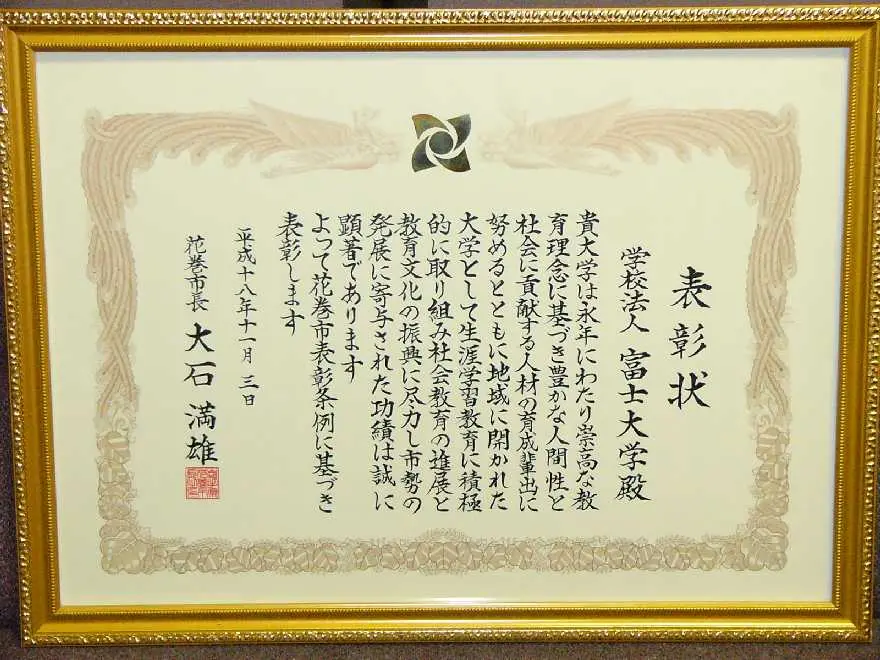 表彰状
学校法人 富士大学殿
貴大学は永年にわたり崇高な教
育理念に基づき豊かな人間性と
社会に貢献する人材の育成輩出に
努めるとともに地域に開かれた
大学として生涯学習教育に積極
的に取り組み社会教育の進展と
教育文化の振興に尽力し市勢の
発展に寄与された功績は誠に
顕著であります
よって花巻市表彰条例に基づき
表彰します
平成十八年十一月 三日
花巻市長 大石 満雄